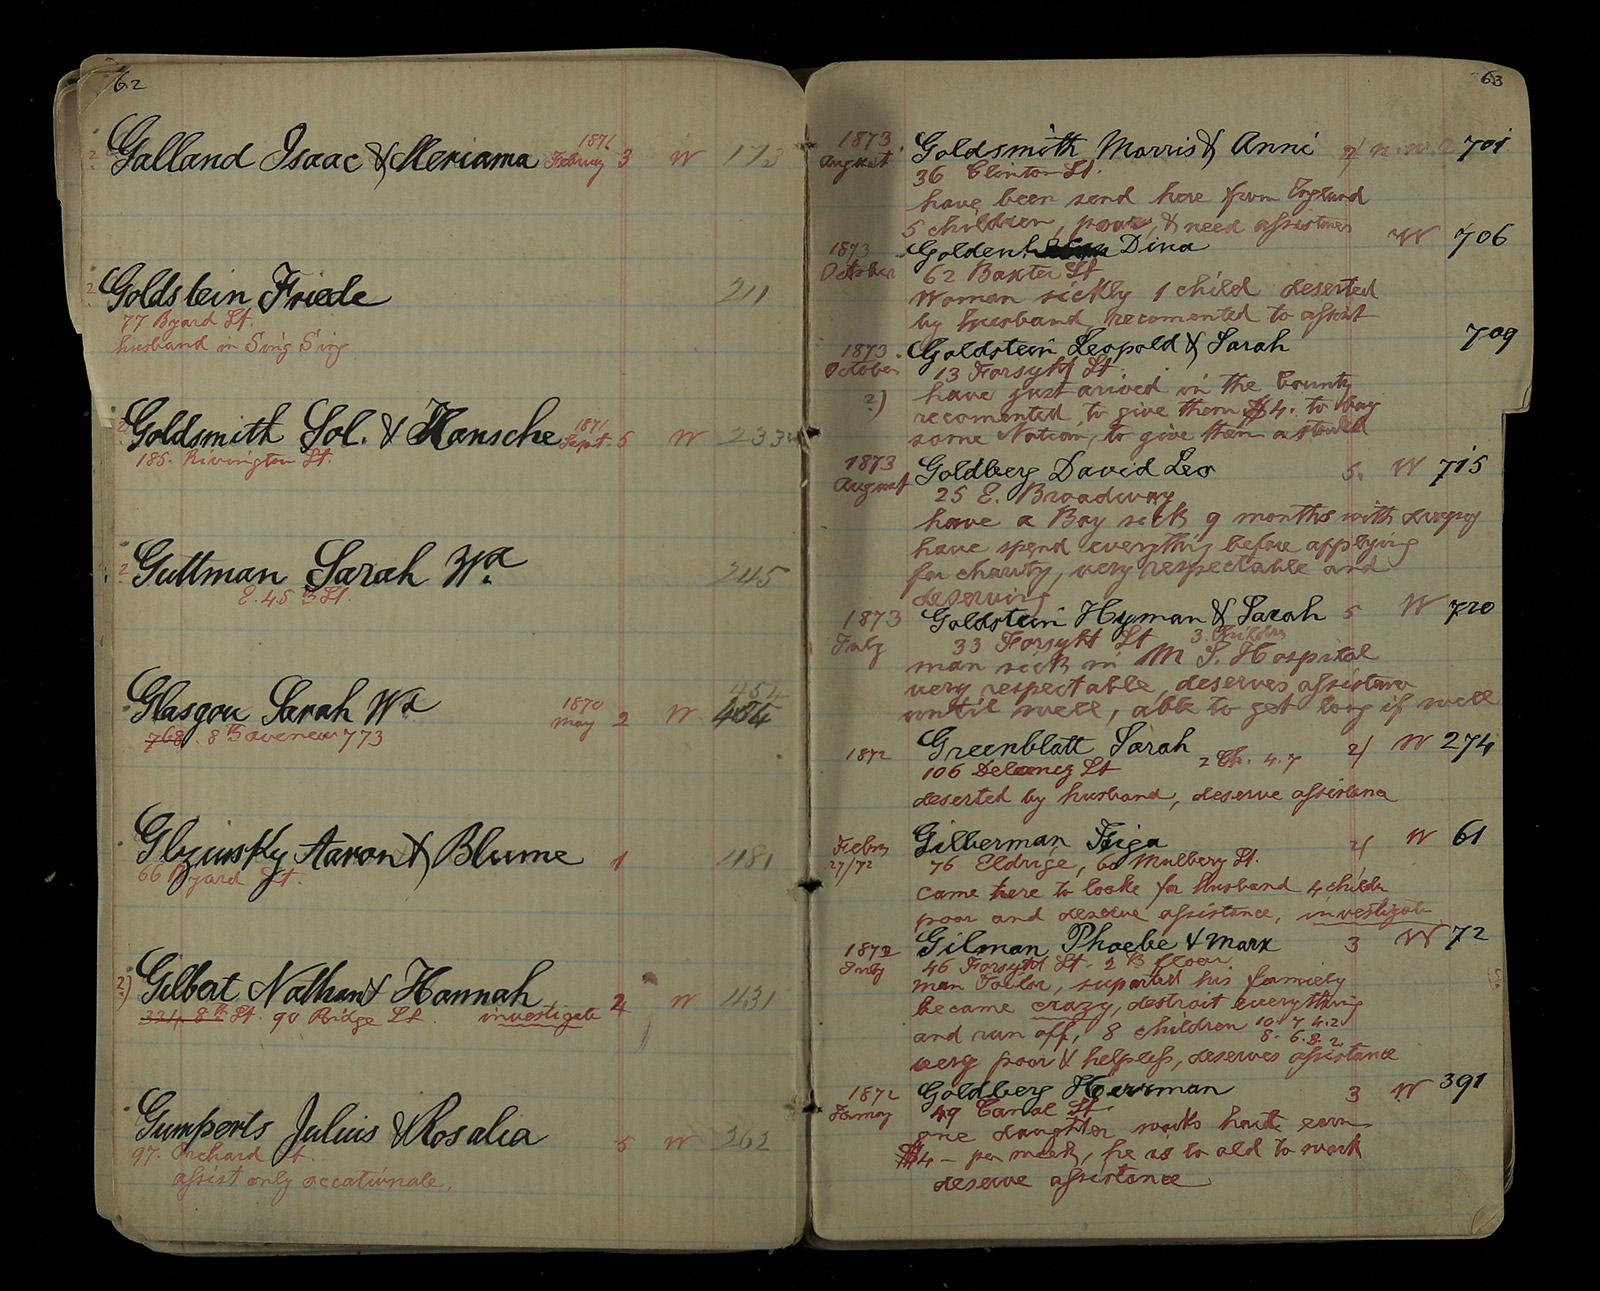 62
Galland Isaac & Meriama 1871 February 3 W 173
Goldstein Friede 211
77 Byard St.
husband in Sing Sing
Goldsmith Sol. & Hansche 1871 Sept. 5 W 233
185. Rivington St.
Guttman Sarah Wd. 245
E. 45 St.
454
Glasgou Sarah Wd 1870 May 2 W
768. 8th avenew 773
Aaron & Blume 1 481
66 Byard St.
2) Gilbert Nathan & Hannah 2 W 431
8th St. 90 Ridge St. investigate
Gumperts Julius & Rosalia 5 W 262
97. Orchard St.
assist only occationale.
63
1873 August Goldsmith Morris & Anni 701
36 Clinton St.
have been send here from England
5 children, poor, & need assistance
1873 October Dina W 706
62 Baxter St
Woman sickly 1 child deserted
by husband, recomented to assist
1873. October Goldstein Leopold & Sarah 709
13 Forsyht St.
2) have just arived in the County
recomented to give them $4. to buy
some Notion, to give them a
1873 August Goldberg David Leo 5. W 715
25 E. Broadway
have a Boy sick 9 months with
have spend everything before applying
for charity, very respectable and
deserving
1873 July Goldstein Hyman & Sarah 5 W 720
33 Forsyht St 3 Children
man sick in M S. Hospital
very respectable, deserves assistance
until well, able to get long if well
1872 Greenblatt Sarah 2/ W 274
106 Delancy St 2 Ch. 4. 7
deserted by husband, deserve assistance
Febry 27/72 Gilberman Feiga 2/ W 61
76 Eldrige, 60 Mulbery St.
came here to looke for husband 4 childn
poor and deserve assistance, investigate
1872 July Gilman Phoebe & Marx 3 W 72
46 Forsyht St. 2 B floor
man Tailor, suported his famiely
became crazy, destroit everything
and run off, 8 children 10. 7. 4. 2
8. 6. 8. 2.
very poor & helpless, deserves assistance
1872 Goldberg Herrman 3 W 391
49 Canal St.
one daughter works earn
$4 – per week, he is to old to work
deserve assistance